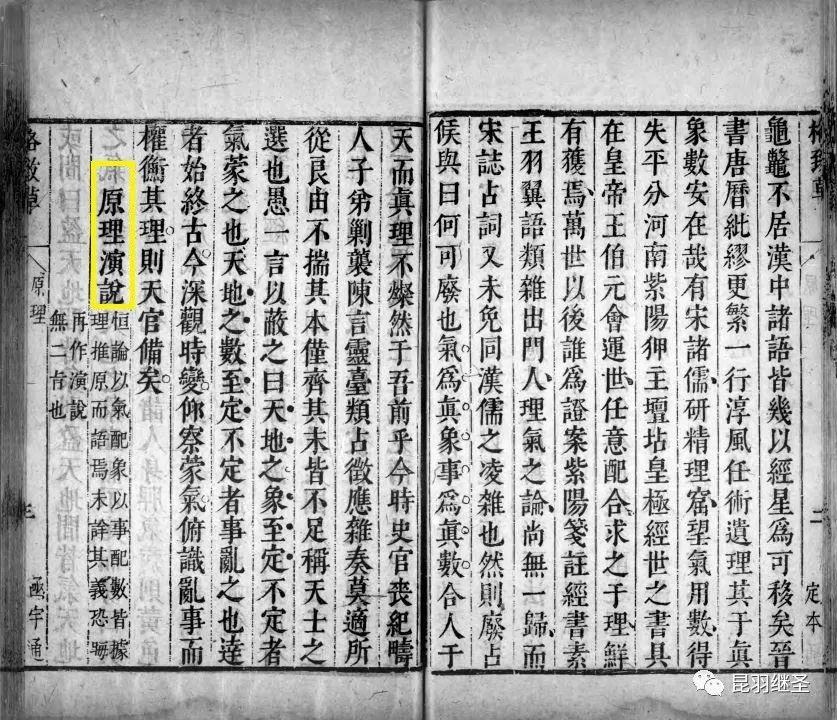 格致草
龜鼈不居漢中諸語皆幾以經星為可移矣晉
書唐曆紕繆更繁一行淳風任術遺理其于眞
象數安在哉有宋諸儒研精理窟望氣用數得
失平分河南紫陽狎主壇坫皇極經世之書具
在皇帝王伯元會運世任意配合求之于理鮮
有獲焉萬世以後誰為證案紫陽箋註經書素
王羽翼語類雜出門人理氣之論尚無一歸而
宋誌占詞又未免同漢儒之凌雜也然則廢占
候與曰何可廢也氣為眞象事為眞數合人于
二
定本
天而眞理不燦然于吾前乎今時史官喪紀疇
人子弟剿襲陳言靈臺類占徵應雜奏莫適所
從良由不揣其本僅齊其末皆不足稱天士之
選也愚一言以蔽之曰天地之象至定不定者
氣蒙之也天地之數至定不定者事亂之也達
者始終古今深觀時變仰察蒙氣俯識亂事而
權衡其理則天官備矣
原理演說
恒論以氣配象以事配數皆據
理推原而語焉未詮其義恐晦
再作演說
無二旨也
格致草
原理
三
函宇通
昆羽继圣